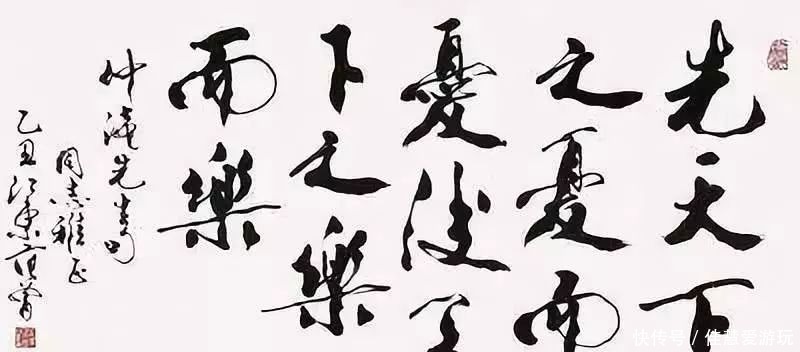 先天下
之憂而
憂後天
下之樂
而樂
仲淹先生句
同志雅正
乙丑江東范曾
快传号 / 佳慧爱游玩